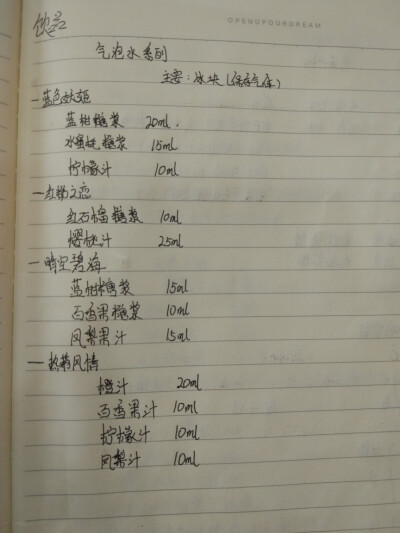 饮品
OPENUPOURDREAM
气泡水系列
主要:冰块(保存气体)
一蓝色妖姬
蓝柑糖浆 20ml.
水蜜桃糖浆 15ml
柠檬汁 10ml
一红粉之恋
红石榴糖浆 10ml
樱桃汁 25ml
一晴空碧海
蓝柑糖浆 15ml
百香果糖浆 10ml
凤梨果汁 15ml
一热带风情
橙汁 20ml
百香果汁 10ml
柠檬汁 10ml
凤梨汁 10ml